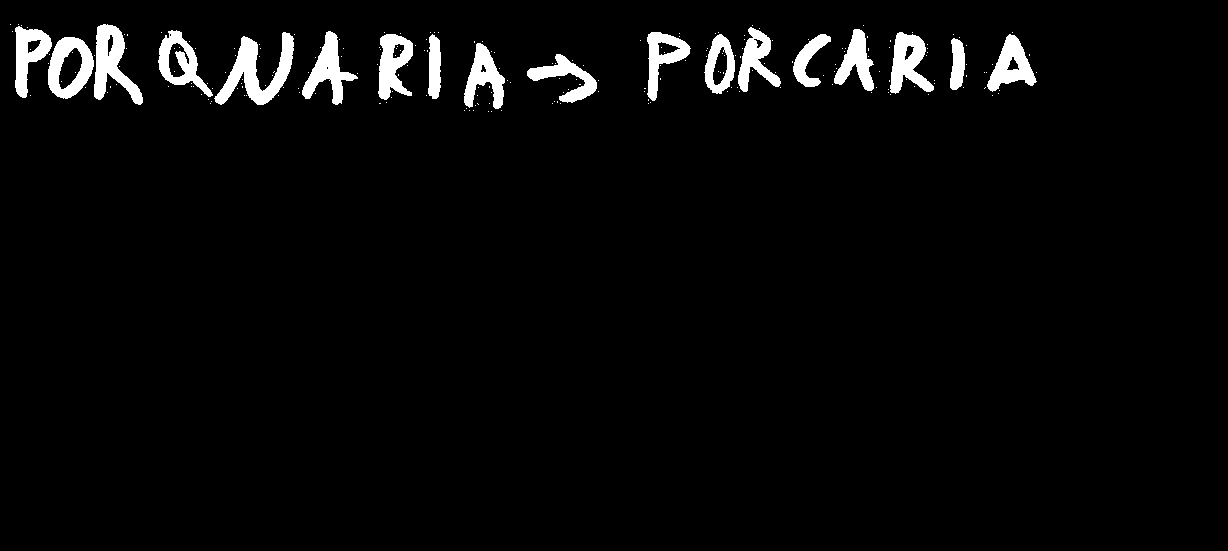 PORQNARIA → PORCARIA